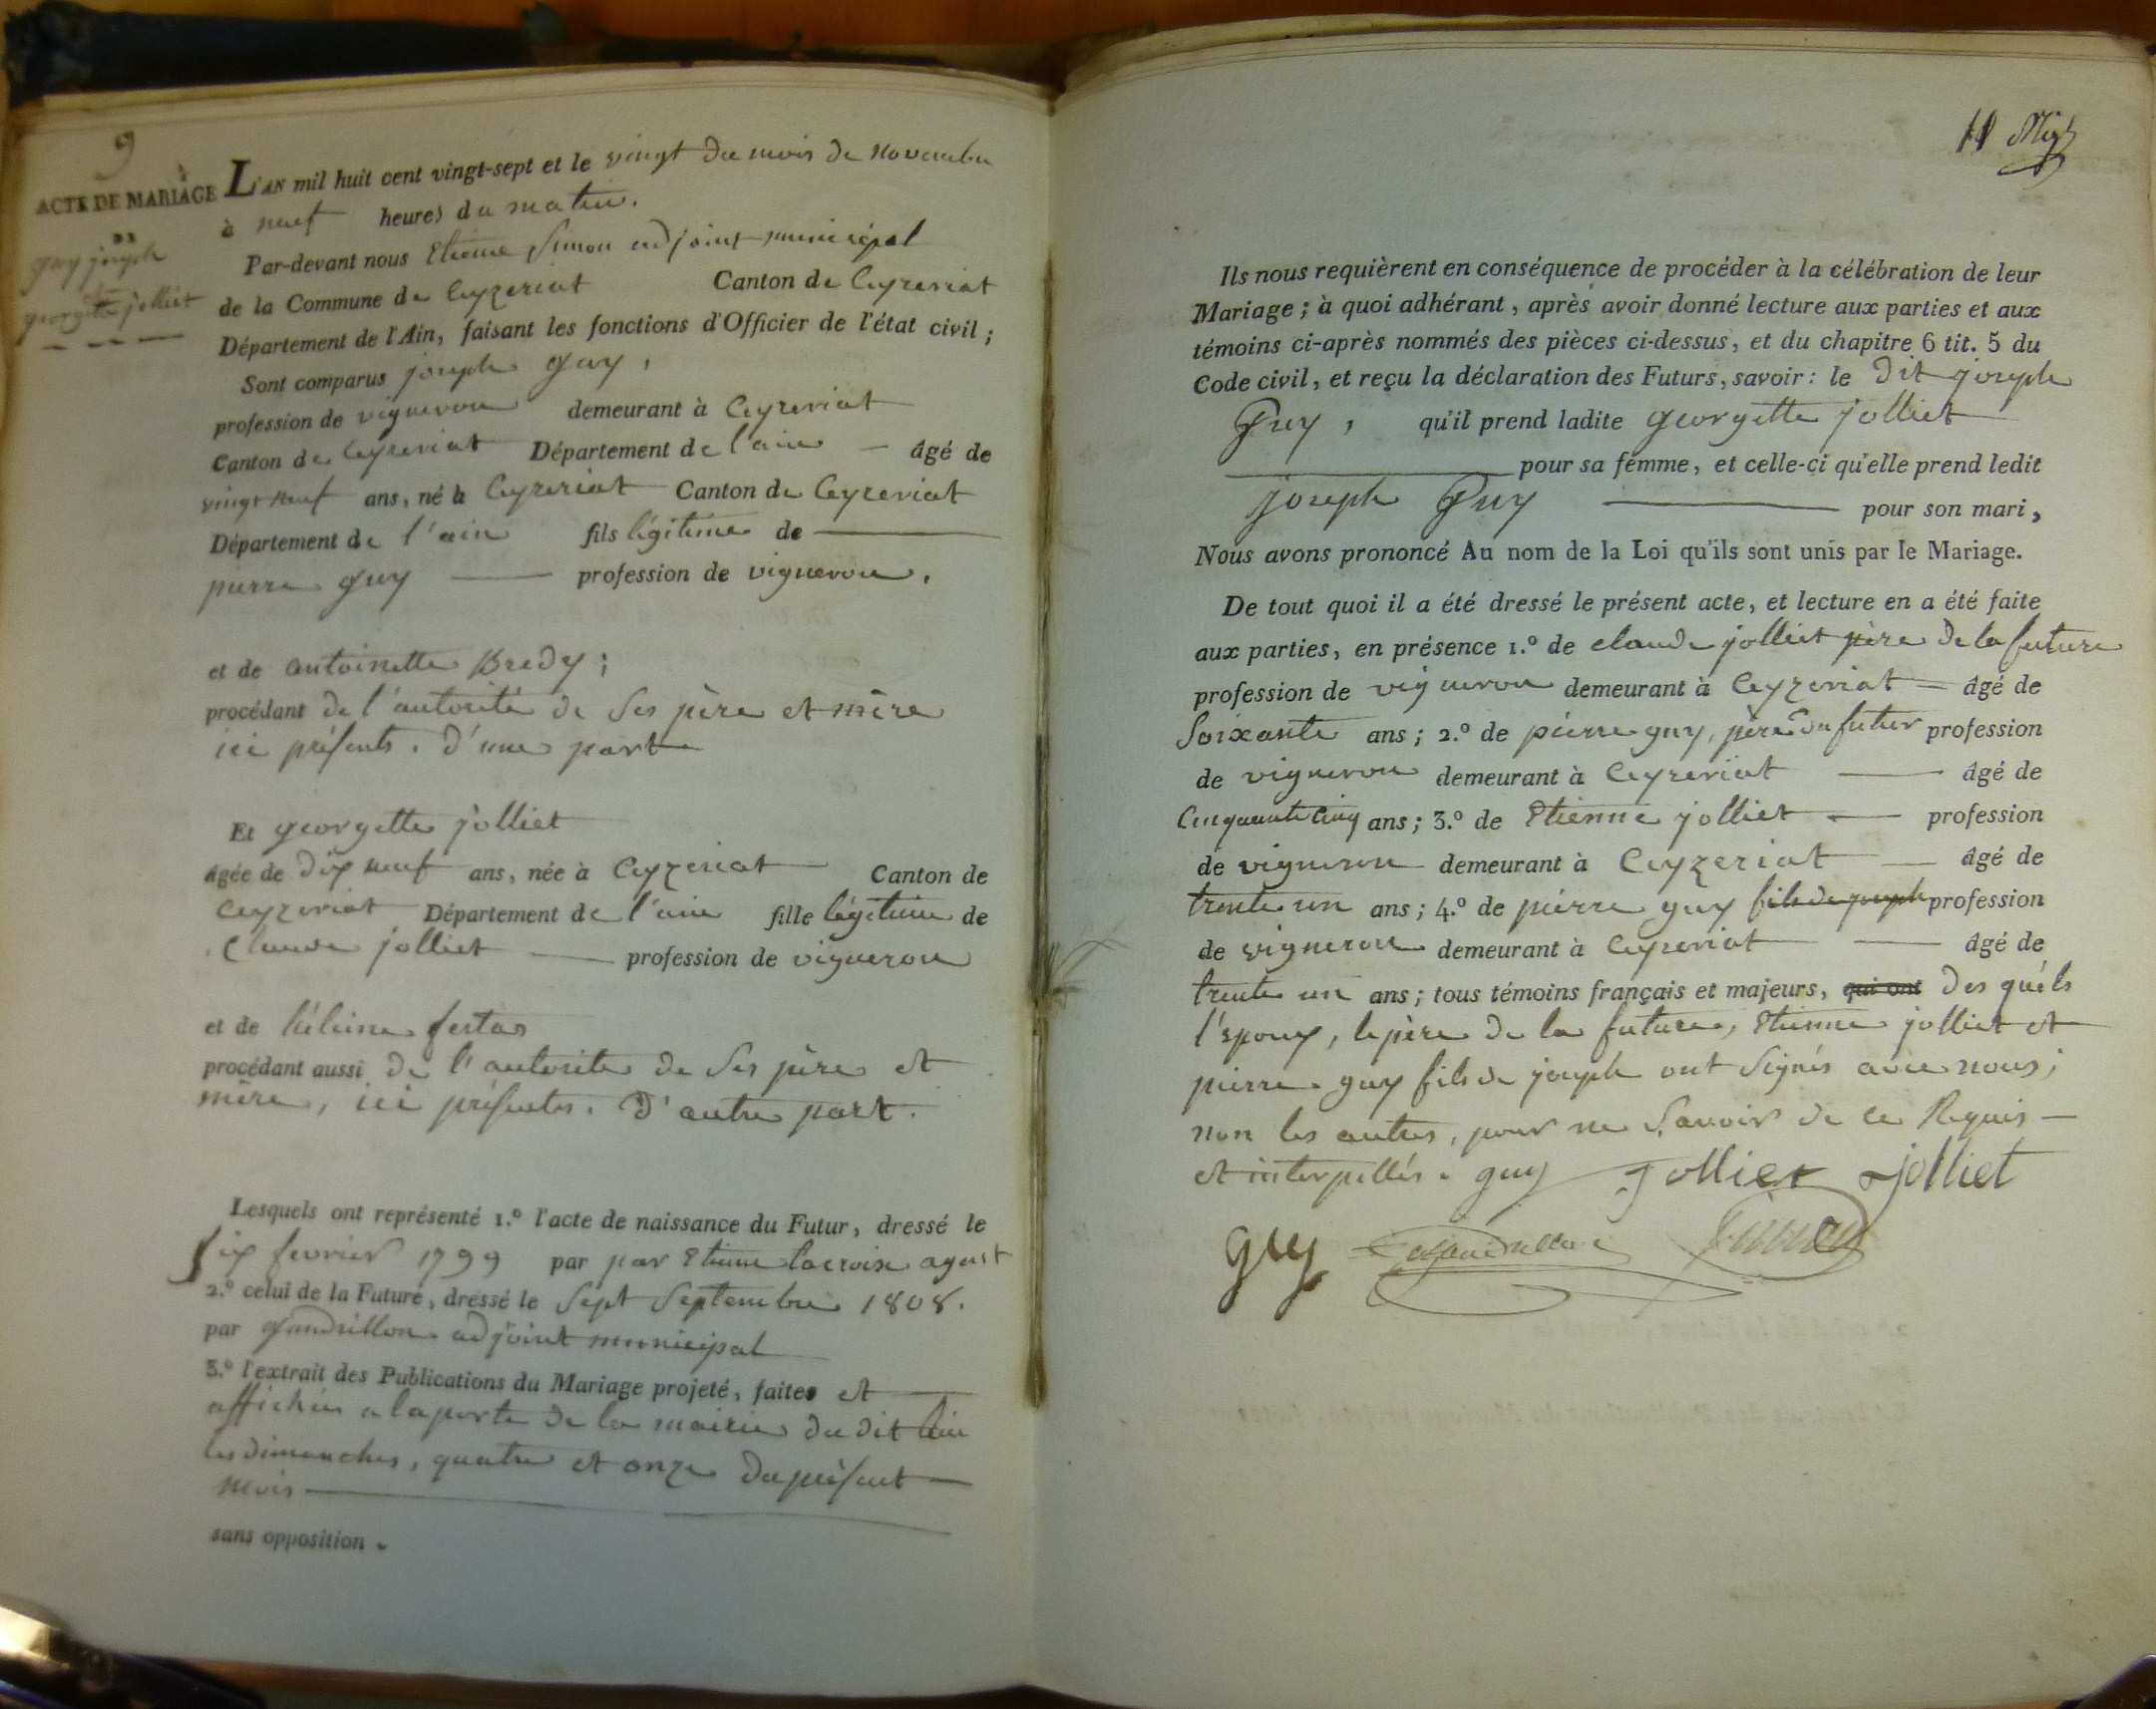 9
ACTE DE MARIAGE
guy joseph
georgette jolliet
L'AN mil huit cent vingt-sept et le vingt du mois de novembre
à neuf heures du matin.
Par-devant nous Etienne Simon adjoint municipal
de la Commune de Ceyzeriat Canton de Ceyzeriat
Département de l'Ain, faisant les fonctions d'Officier de l'état civil ;
Sont comparus joseph guy ,
profession de vigneron demeurant à Ceyzeriat
Canton de Ceyzeriat Département de l'ain — âgé de
vingt neuf ans, né à Ceyzeriat Canton de Ceyzeriat
Département de l'ain fils légitime de —
pierre guy — profession de vigneron .
et de antoinette Bredy ;
procédant de l'autorité de ses père et mère
ici présents . d'une part
Et georgette jolliet
âgée de dix neuf ans, née à Ceyzeriat Canton de
Ceyzeriat Département de l'ain fille légitime de
Claude jolliet — profession de vigneron
et de hélaine fertas
procédant aussi de l'autorité de ses père et
mère, ici présents. d'autre part.
Lesquels ont représenté 1.º l'acte de naissance du Futur, dressé le
six fevrier 1799 par par Etienne Lacroix agent
2.º celui de la Future, dressé le sept septembre 1808.
par gandrillon adjoint municipal
3.º l'extrait des Publications du Mariage projeté, faites et
affichées a la porte de la mairie du dit lieu
les dimanches, quatre et onze du présent —
mois —
sans opposition .
11
Ils nous requièrent en conséquence de procéder à la célébration de leur
Mariage ; à quoi adhérant , après avoir donné lecture aux parties et aux
témoins ci-après nommés des pièces ci-dessus, et du chapitre 6 tit. 5 du
Code civil, et reçu la déclaration des Futurs, savoir : le dit joseph
Guy , qu'il prend ladite georgette jolliet
— pour sa femme, et celle-ci qu'elle prend ledit
joseph Guy — pour son mari ,
Nous avons prononcé Au nom de la Loi qu'ils sont unis par le Mariage.
De tout quoi il a été dressé le présent acte, et lecture en a été faite
aux parties, en présence 1.º de claude jolliet père de la future
profession de vigneron demeurant à Ceyzeriat — âgé de
soixante ans ; 2.º de pierre guy, père du futur profession
de vigneron demeurant à Ceyzeriat — âgé de
Cinquante cinq ans ; 3.º de Etienne jolliet — profession
de vigneron demeurant à Ceyzeriat — âgé de
trente un ans ; 4.º de pierre guy fils de joseph profession
de vigneron demeurant à Ceyzeriat — âgé de
trente un ans ; tous témoins français et majeurs, qui ont des quels
l'époux, le père de la future, Etienne jolliet et
pierre guy fils de joseph ont signés avec nous ;
non les autres, pour ne savoir de ce Requis —
et interpellés . guy Jolliet jolliet
guy Simon